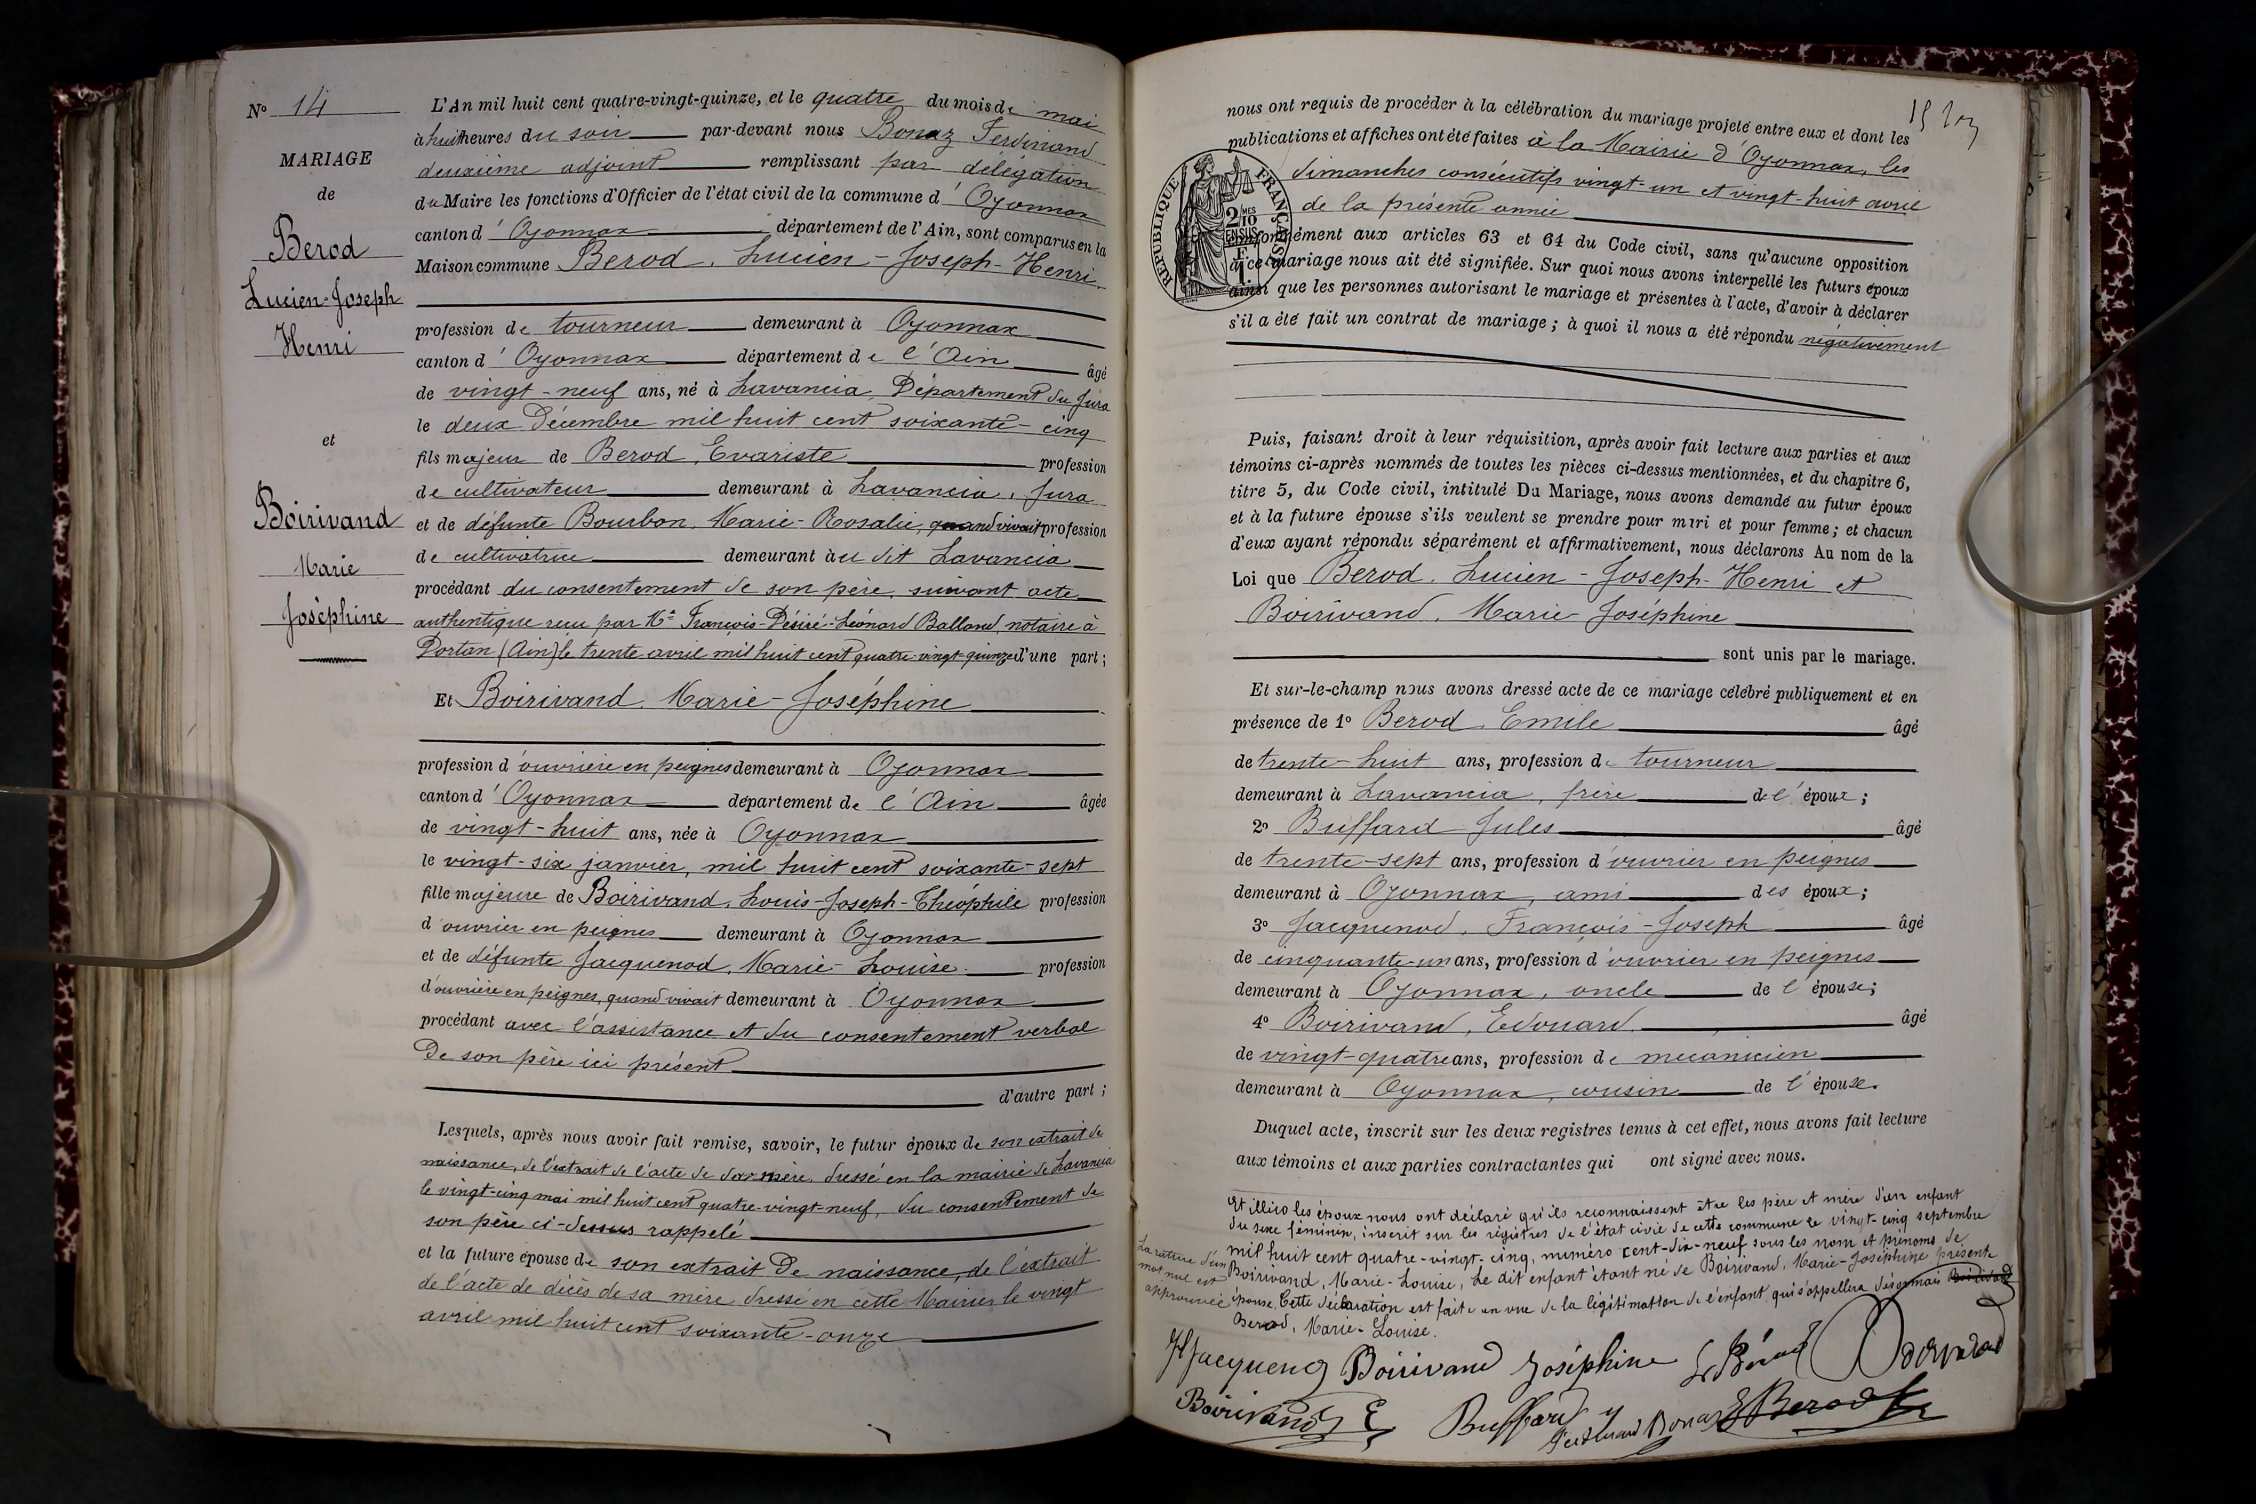 N° 14
MARIAGE
de
Berod
Lucien-Joseph
Henri
et
Boirivand
Marie
Joséphine
L'An mil huit cent quatre-vingt-quinze, et le quatre du mois de mai
à huit heures du soir par-devant nous Bonaz Ferdinand
deuxième adjoint remplissant par délégation
du Maire les fonctions d'Officier de l'état civil de la commune d'Oyonnax
canton d'Oyonnax département de l'Ain, sont comparus en la
Maison commune Berod, Lucien-Joseph-Henri
profession de tourneur demeurant à Oyonnax
canton d'Oyonnax département de l'Ain âgé
de vingt-neuf ans, né à Lavancia, Département du Jura
le deux Décembre mil huit cent soixante-cinq
fils majeur de Berod, Evariste profession
de cultivateur demeurant à Lavancia, Jura
et de défunte Bourbon, Marie-Rosalie, quand vivait profession
de cultivatrice demeurant à u dit Lavancia
procédant du consentement de son père, suivant acte
authentique reçu par Me François-Désiré-Léonard Balland, notaire à
Dortan (Ain) le trente avril mil huit cent quatre-vingt-quinze d'une part;
Et Boirivand, Marie-Joséphine
profession d'ouvrière en peignes demeurant à Oyonnax
canton d'Oyonnax département de l'Ain âgée
de vingt-huit ans, née à Oyonnax
le vingt-six janvier, mil huit cent soixante-sept
fille majeure de Boirivand, Louis-Joseph-Théophile profession
d'ouvrier en peignes demeurant à Oyonnax
et de défunte Jacquenod, Marie-Louise profession
d'ouvrière en peignes, quand vivait demeurant à Oyonnax
procédant avec l'assistance et du consentement verbal
de son père ici présent
d'autre part;
Lesquels, après nous avoir fait remise, savoir, le futur époux de son extrait de
naissance, de l'extrait de l'acte de sa mère, dressé en la mairie de Lavancia
le vingt-cinq mai mil huit cent quatre-vingt-neuf, du consentement de
son père ci-dessus rappelé
et la future épouse de son extrait de naissance, de l'extrait
de l'acte de décès de sa mère dressé en cette Mairie, le vingt
avril mil huit cent soixante-onze
nous ont requis de procéder à la célébration du mariage projeté entre eux et dont les
publications et affiches ont été faites à la Mairie d'Oyonnax, les
dimanches consécutifs vingt-un et vingt-huit avril
de la présente année
RÉPUBLIQUE FRANÇAISE
2/10 MES
EN SUS
conformément aux articles 63 et 64 du Code civil, sans qu'aucune opposition
à ce mariage nous ait été signifiée. Sur quoi nous avons interpellé les futurs époux
ainsi que les personnes autorisant le mariage et présentes à l'acte, d'avoir à déclarer
s'il a été fait un contrat de mariage; à quoi il nous a été répondu négativement
Puis, faisant droit à leur réquisition, après avoir fait lecture aux parties et aux
témoins ci-après nommés de toutes les pièces ci-dessus mentionnées, et du chapitre 6,
titre 5, du Code civil, intitulé Du Mariage, nous avons demandé au futur époux
et à la future épouse s'ils veulent se prendre pour mari et pour femme; et chacun
d'eux ayant répondu séparément et affirmativement, nous déclarons Au nom de la
Loi que Berod, Lucien-Joseph-Henri et
Boirivand, Marie-Joséphine
sont unis par le mariage.
Et sur-le-champ nous avons dressé acte de ce mariage célébré publiquement et en
présence de 1° Berod Emile âgé
de trente-huit ans, profession de tourneur
demeurant à Lavancia, frère de l'époux;
2° Buffard Jules âgé
de trente-sept ans, profession d'ouvrier en peignes
demeurant à Oyonnax, ami des époux;
3° Jacquenod, François-Joseph âgé
de cinquante-un ans, profession d'ouvrier en peignes
demeurant à Oyonnax, oncle de l'épouse;
4° Boirivand, Edouard âgé
de vingt-quatre ans, profession de mecanicien
demeurant à Oyonnax, cousin de l'épouse.
Duquel acte, inscrit sur les deux registres tenus à cet effet, nous avons fait lecture
aux témoins et aux parties contractantes qui ont signé avec nous.
Et illico les époux nous ont déclaré qu'ils reconnaissent être les père et mère d'un enfant
du sexe féminin, inscrit sur les régistres de l'état civil de cette commune le vingt-cinq septembre
mil huit cent quatre-vingt-cinq, numéro cent-dix-neuf sous les nom et prénoms de
Boirivand, Marie-Louise, le dit enfant étant né de Boirivand, Marie-Joséphine présente
épouse. Cette déclaration est faite en vue de la légitimation de l'enfant qui s'appellera désormais Boirivand
Berod, Marie-Louise.
La rature d'un
mot nul est
approuvée
Boirivand Joséphine
Boirivand E
Buffard
Ferdinand Bonaz
E Berod